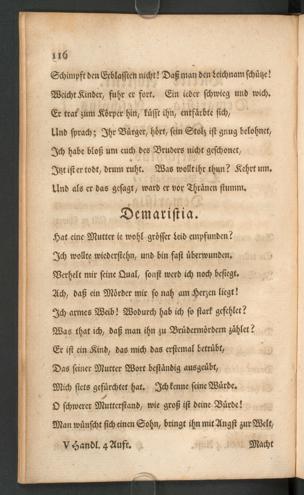 116
Schimpft den Erblaßten nicht! Daß man den Leichnam schütze!
Weicht Kinder, fuhr er fort. Ein ieder schwieg und wich.
Er trat zum Körper hin, küßt ihn, entfärbte sich,
Und sprach; Ihr Bürger, hört, sein Stolz ist gnug belohnet,
Ich habe bloß um euch des Bruders nicht geschonet,
Izt ist er todt, drum ruht. Was wollt ihr thun? Kehrt um.
Und als er das gesagt, ward er vor Thränen stumm.
Demaristia.
Hat eine Mutter ie wohl grösser Leid empfunden?
Ich wollte wiederstehn, und bin fast überwunden.
Verhelt mir seine Qual, sonst werd ich noch besiegt.
Ach, daß ein Mörder mir so nah am Herzen liegt!
Ich armes Weib! Wodurch hab ich so stark gefehlet?
Was that ich, daß man ihn zu Brüdermördern zählet?
Er ist ein Kind, das mich das erstemal betrübt,
Das seiner Mutter Wort beständig ausgeübt,
Mich stets gefürchtet hat. Ich kenne seine Würde.
O schwerer Mutterstand, wie groß ist deine Bürde!
Man wünscht sich einen Sohn, bringt ihn mit Angst zur Welt,
V Handl. 4 Auftr. Macht